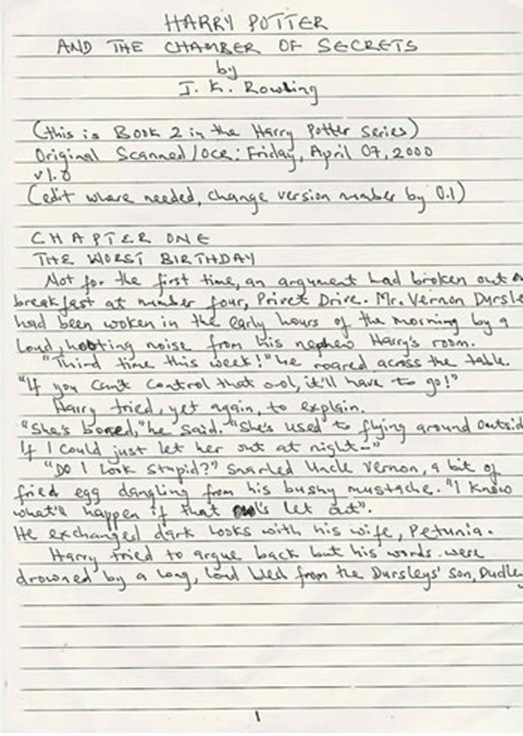 HARRY POTTER
AND THE CHAMBER OF SECRETS
by
J. K. Rowling
(this is Book 2 in the Harry Potter series)
Original Scanned/OCR: Friday, April 07, 2000
v1.0
(edit where needed, change version number by 0.1)
CHAPTER ONE
THE WORST BIRTHDAY
Not for the first time, an argument had broken out
breakfast at number four, Privet Drive. Mr. Vernon Dursle
had been woken in the early hours of the morning by a
loud, hooting noise from his nephew Harry's room.
"Third time this week!" he roared across the table.
"If you can't control that owl, it'll have to go!"
Harry tried, yet again, to explain.
"She's bored," he said. "She's used to flying around outsid
If I could just let her out at night-"
"Do I look stupid?" snarled Uncle Vernon, a bit of
fried egg dangling from his bushy mustache. "I know
what'll happen if that owl's let out".
He exchanged dark looks with his wife, Petunia.
Harry tried to argue back but his words were
drowned by a long, loud belch from the Dursleys' son, Dudley
1